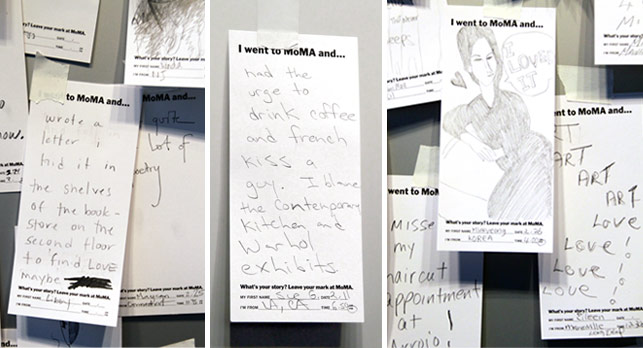 What's your story? Leave your mark at MoMA.
I went to MoMA and...
wrote a
letter,
hid it in
the shelves
of the book-
store on the
second floor
to find LOVE
maybe
What's your story? Leave your mark at MoMA.
MY FIRST NAME Libby
I'M FROM
MoMA and...
quite
lot of
poetry
I went to MoMA and...
had the
urge to
drink coffee
and french
kiss a
guy. I blame
the Contemporary
Kitchen and
Warhol
exhibits
What's your story? Leave your mark at MoMA.
MY FIRST NAME Sue G. DATE
I'M FROM LA, CA TIME
I went to MoMA and...
I
LOVE
IT
What's your story? Leave your mark at MoMA.
MY FIRST NAME DATE 2.26
I'M FROM KOREA TIME
went to MoMA and...
Misse
my
haircut
appointment
at
to MoMA and...
ART
ART
ART
ART
Love!
Love!
Love!
Love!
What's your story? Leave your mark at MoMA.
MY FIRST NAME Eileen
I'M FROM